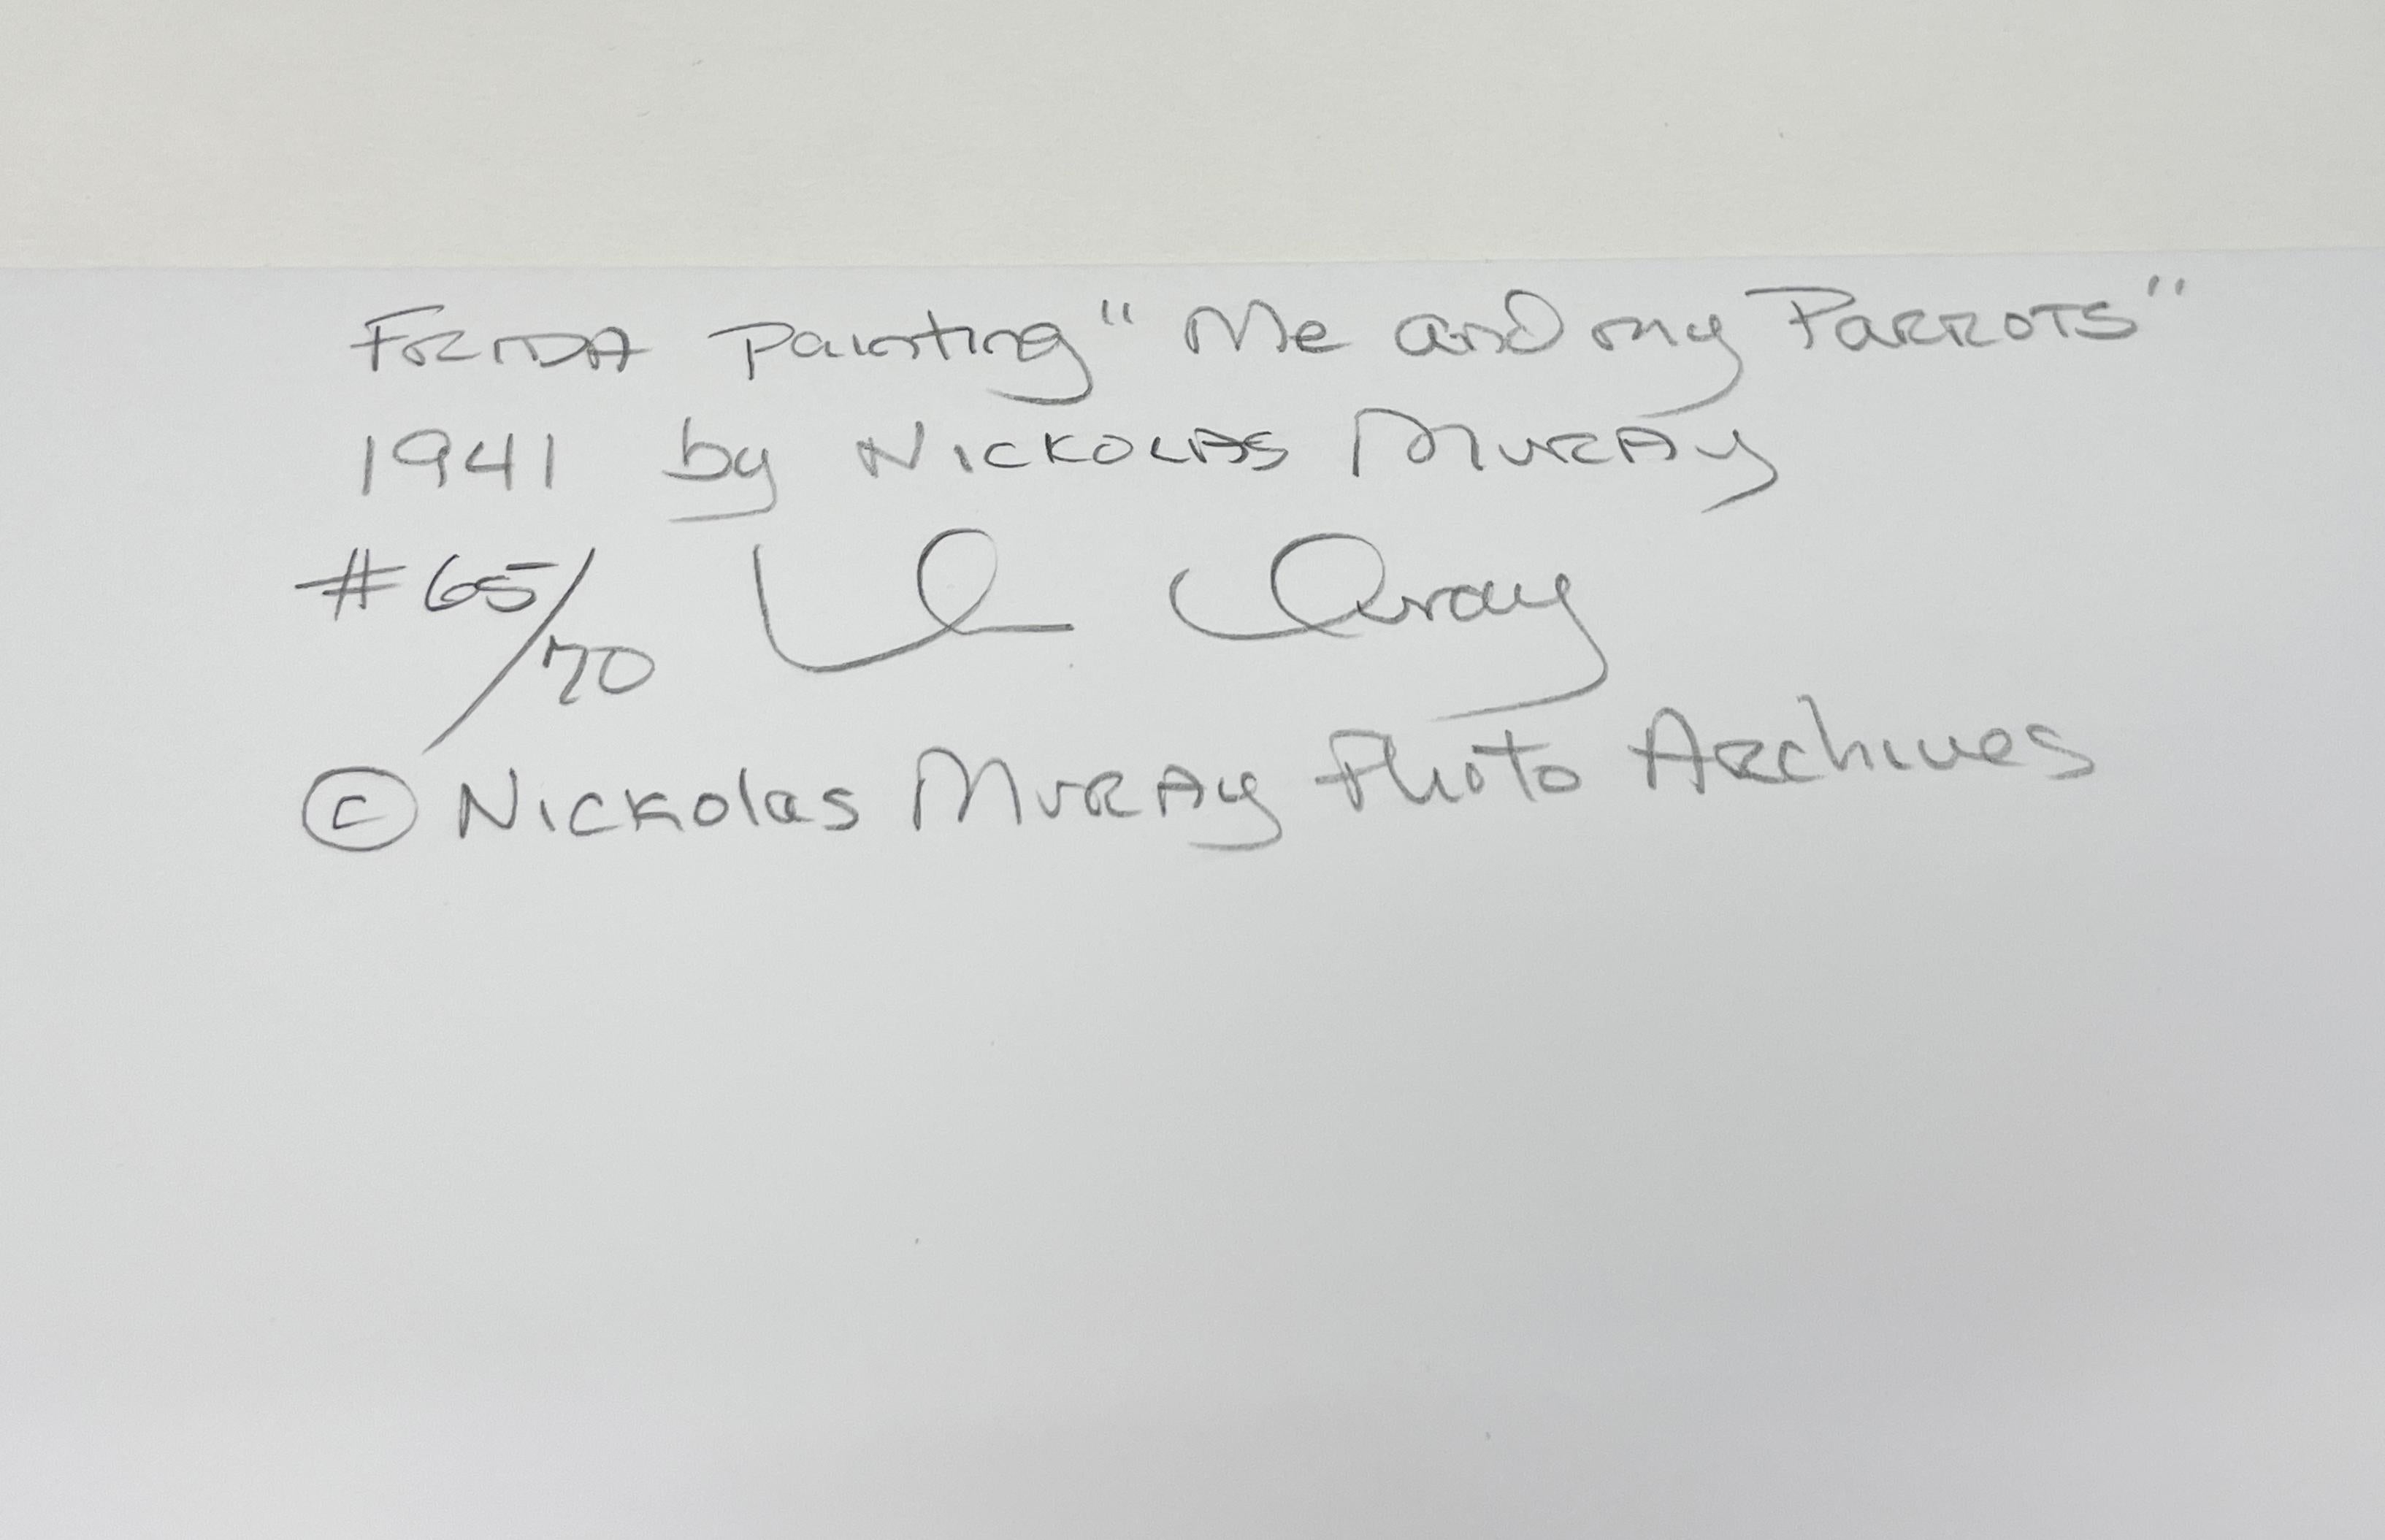 FRIDA Painting "Me and my PARROTS"
1941 by NICKOLAS MURAY
#65/70 Muray
© Nickolas MURAY Photo Archives